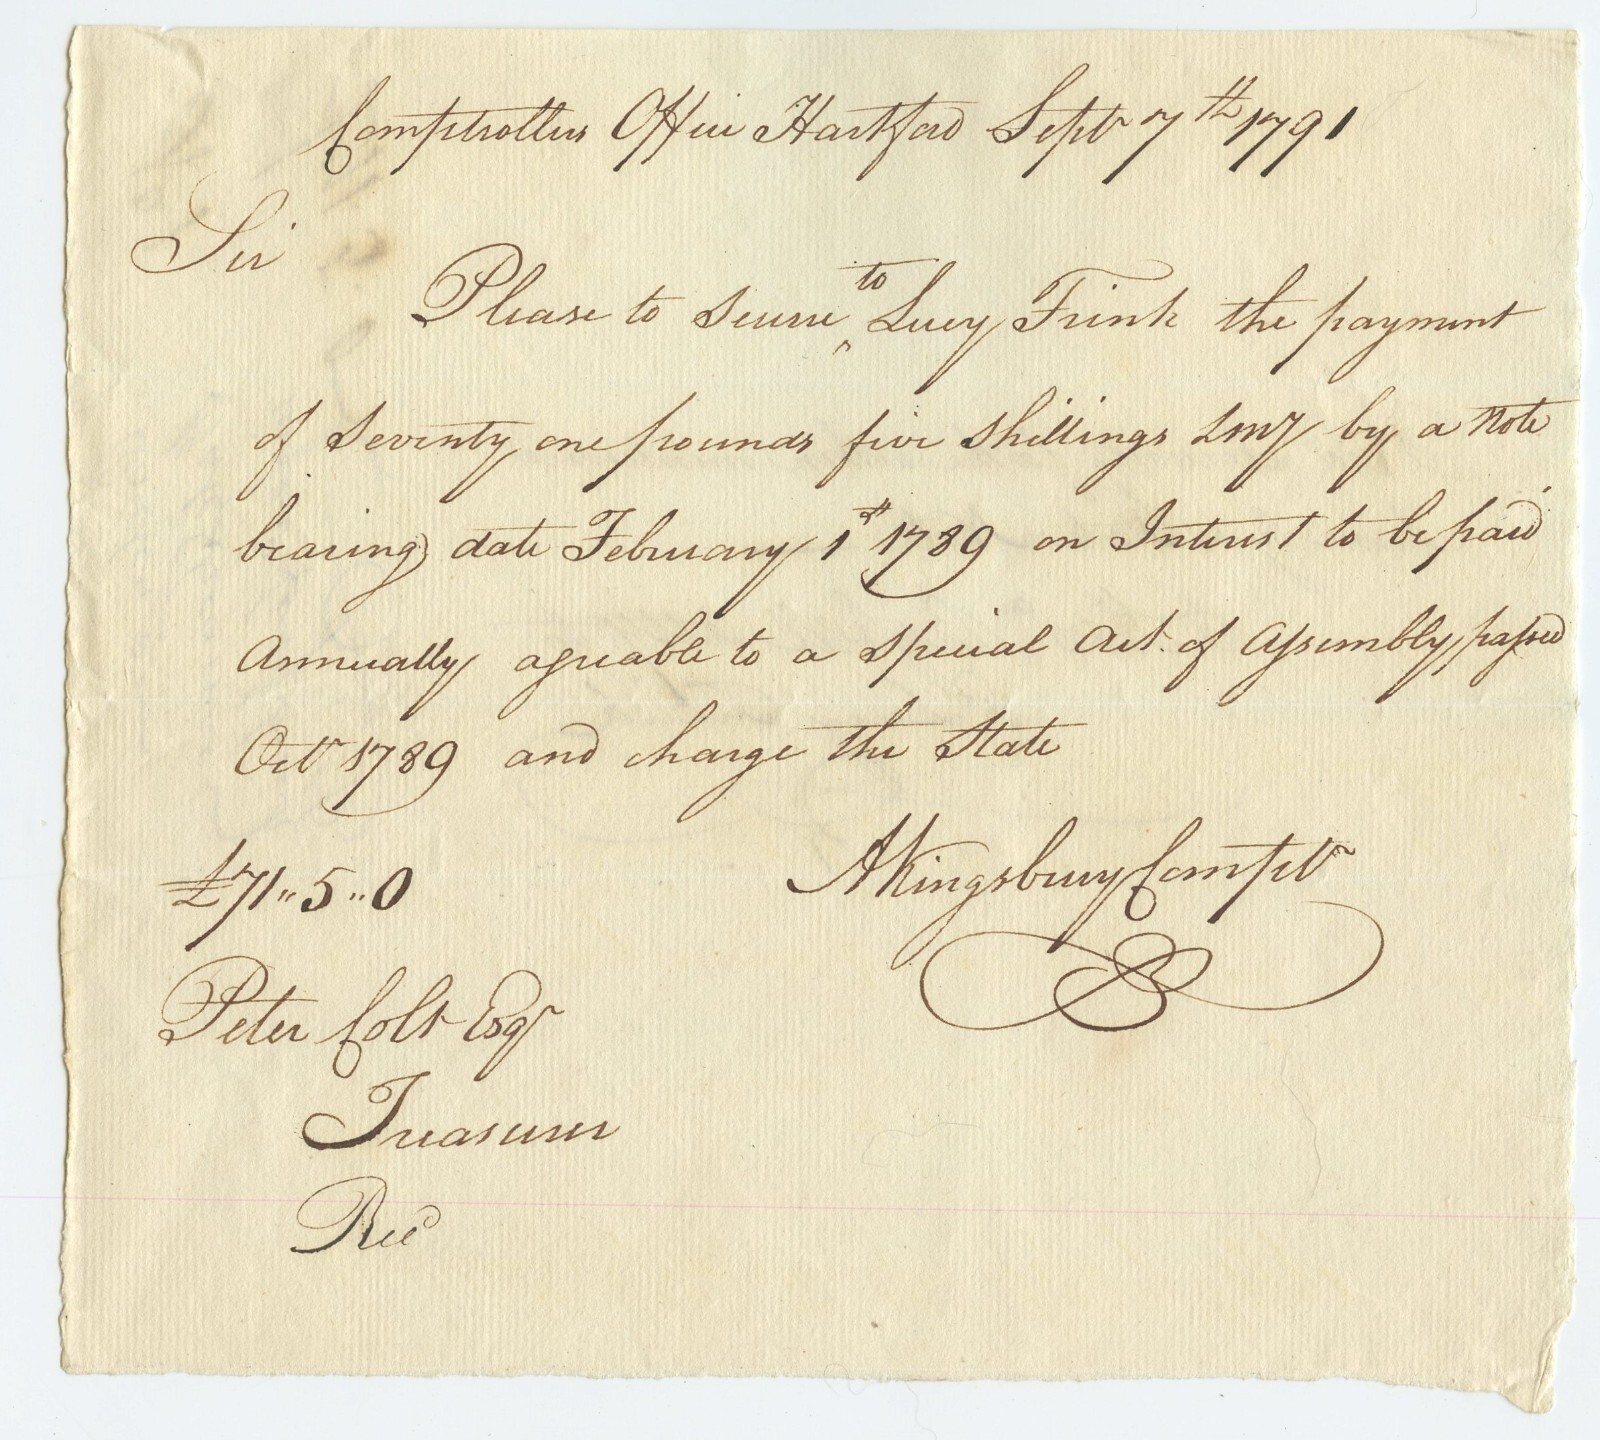 Comptrollers Office Hartford Sept 7th 1791
Sir
Please to secure to Lucy Frink the payment
of seventy one pounds five shillings LMy by a Note
bearing date February 1st 1789 on Interest to be paid
Annually agreable to a special Act. of Assembly passed
Octr 1789 and charge the State
£71.. 5.. 0
AKingsbury Comptr
Peter Colt Esqr
Treasurer
Recd